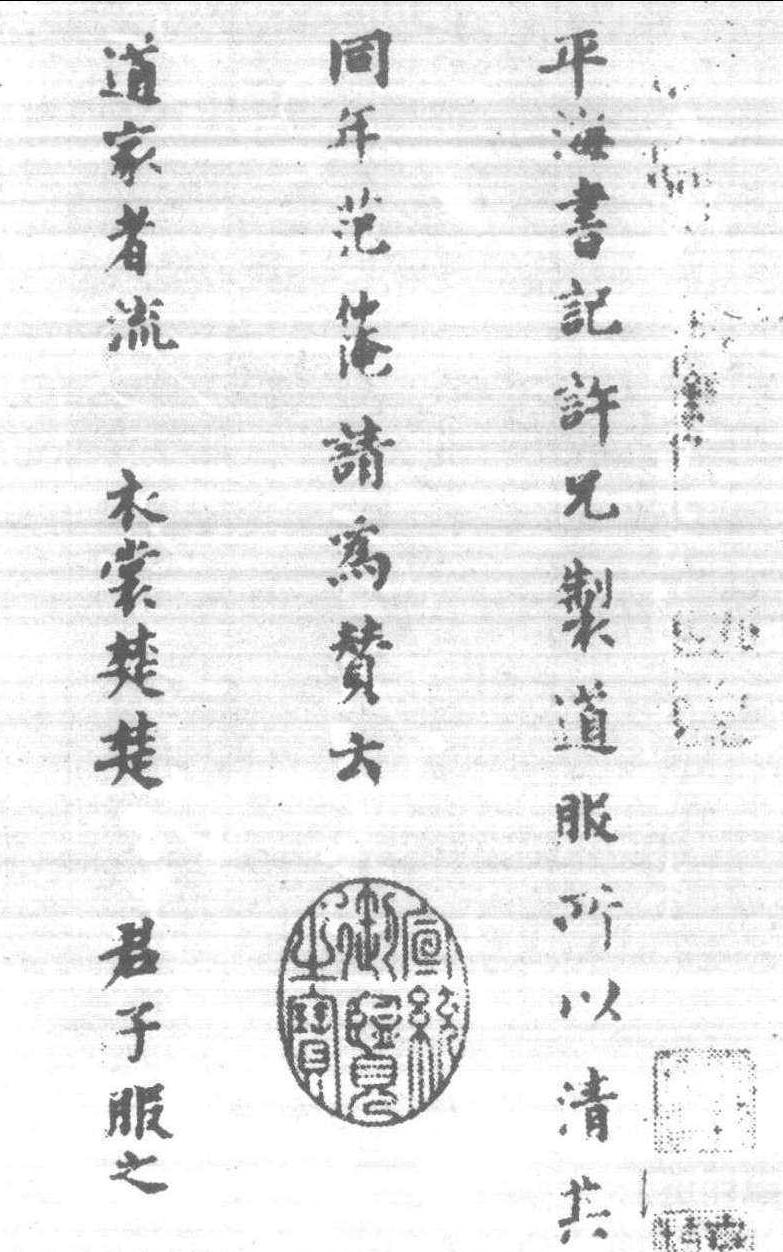 平海書記許兄製道服所以清其
同年范仲淹請為賛云
宣統御覽之寶
道家者流 衣裳楚楚 君子服之